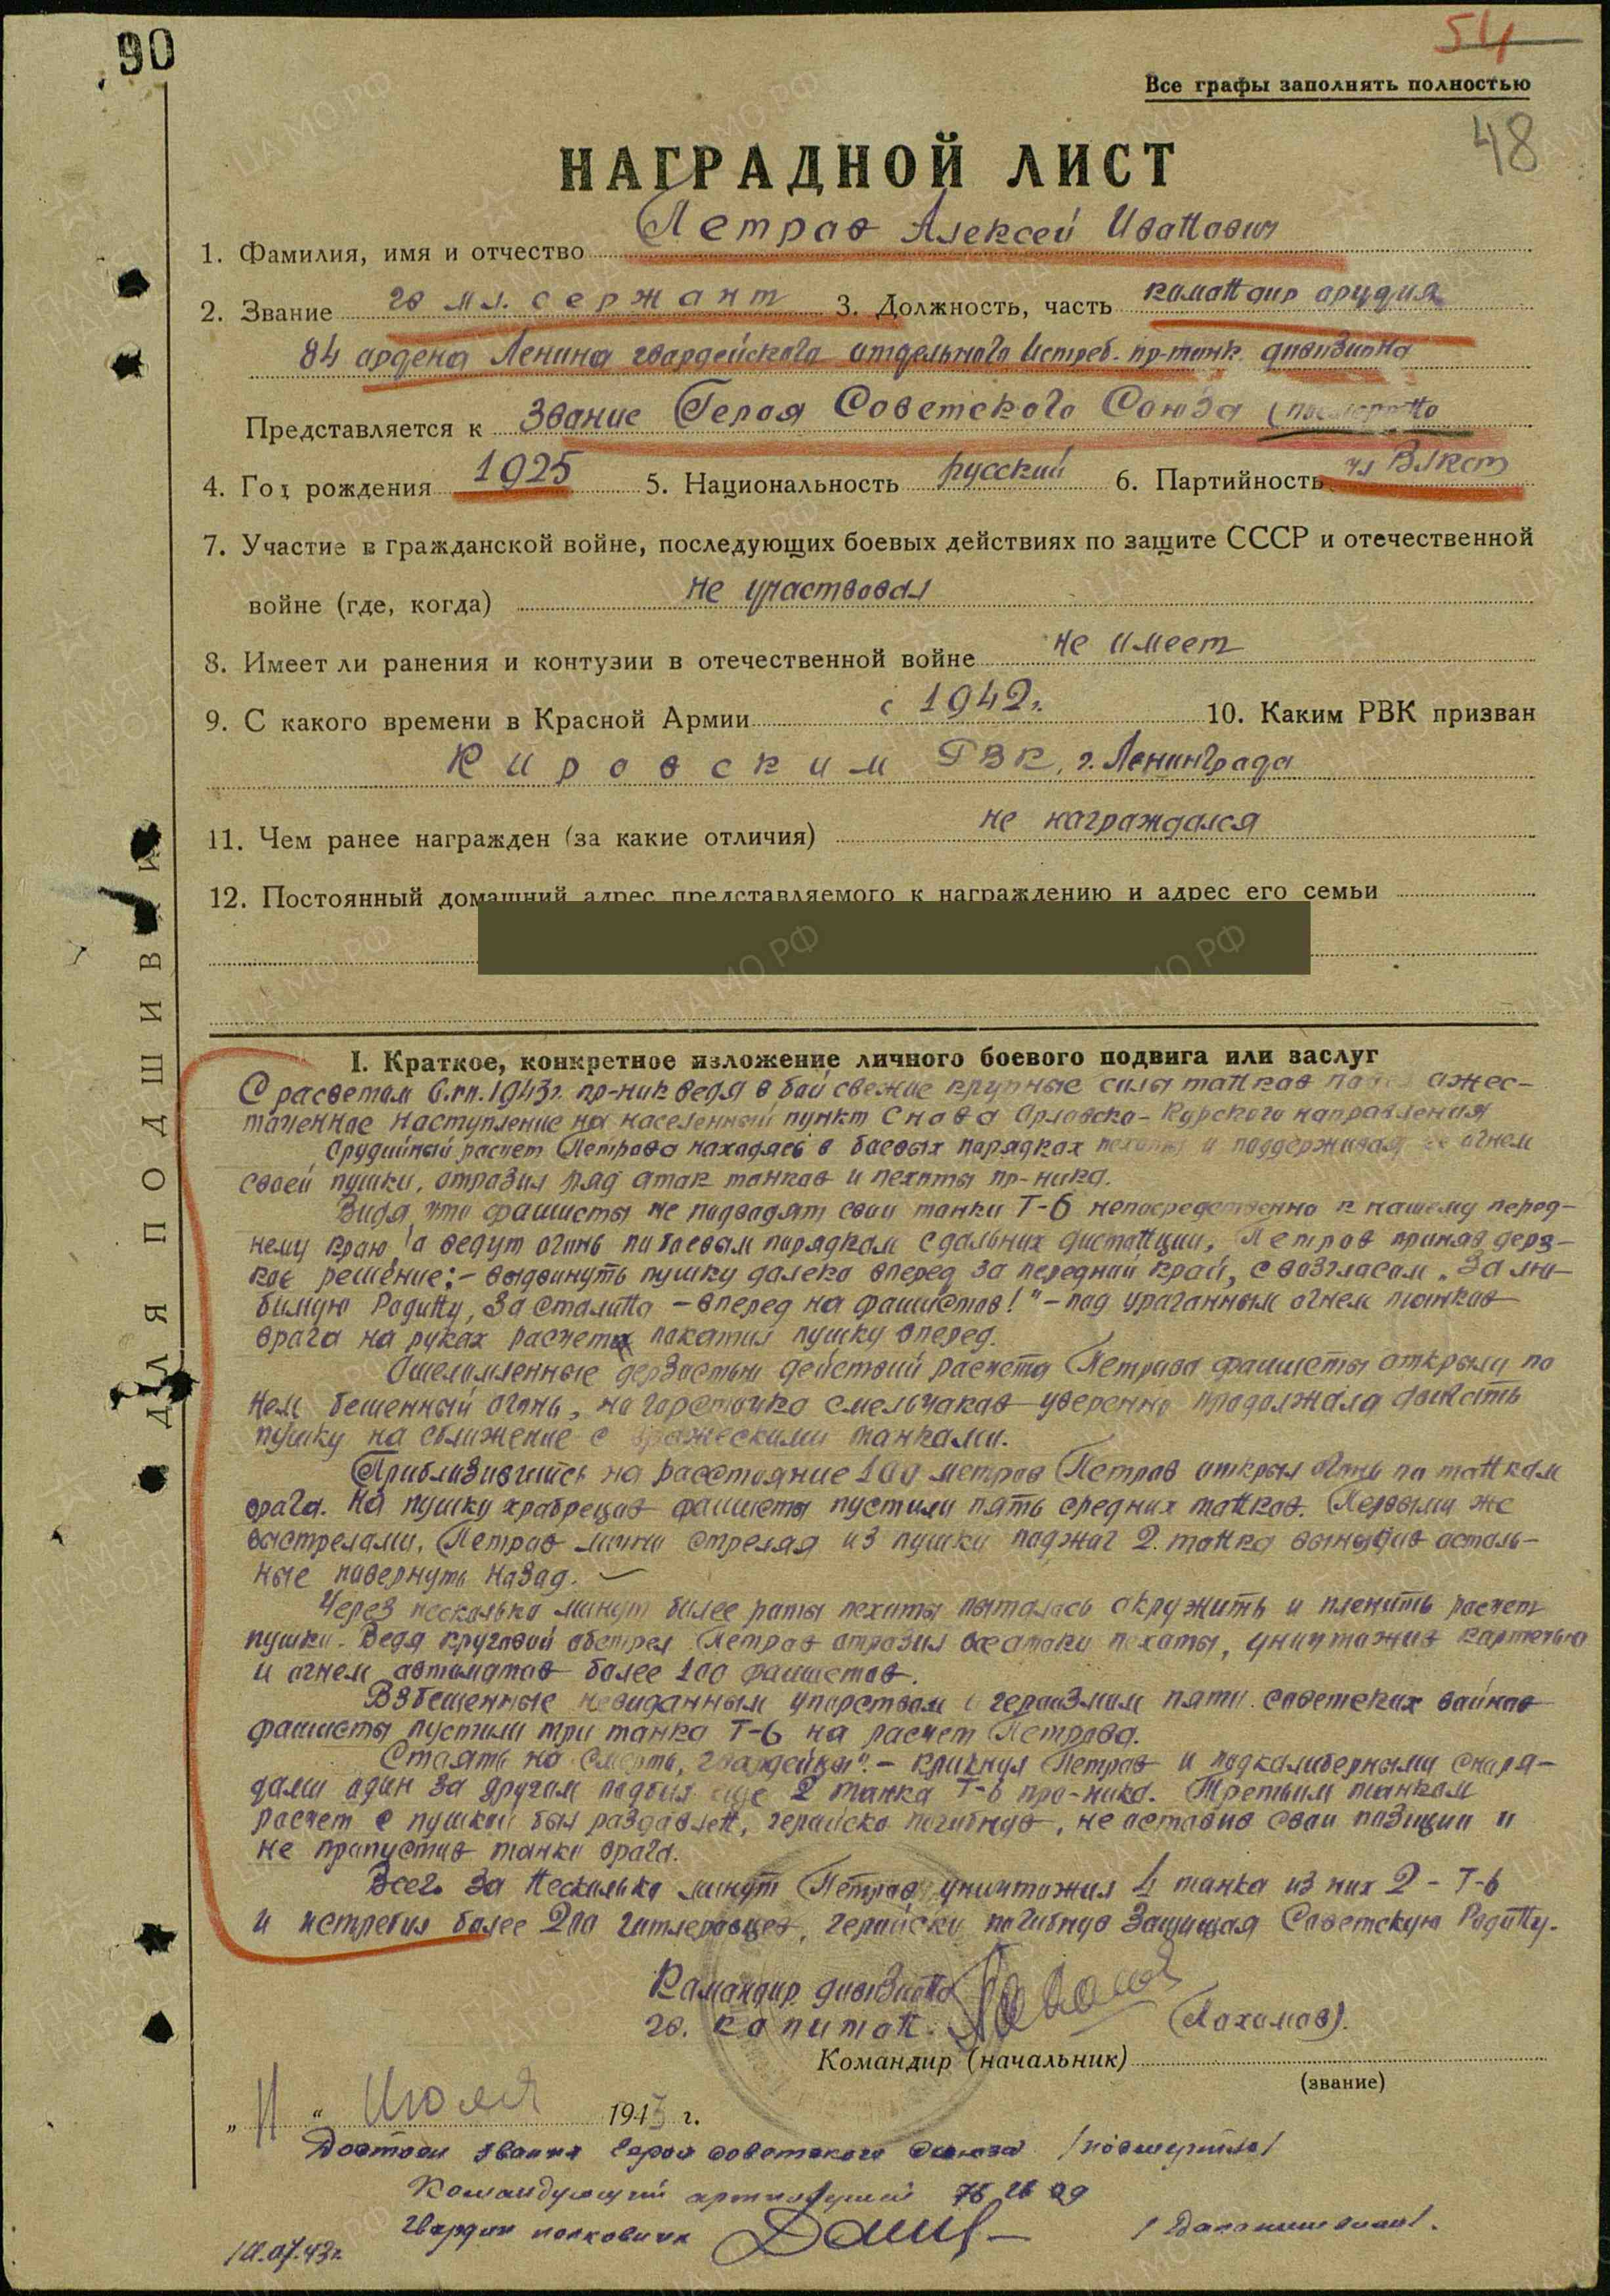 90
54
Все графы заполнять полностью
48
НАГРАДНОЙ ЛИСТ
1. Фамилия, имя и отчество Петров Алексей Иванович
2. Звание гв мл. сержант 3. Должность, часть командир орудия
84 ордена Ленина гвардейского отдельного Истреб. пр-танк. дивизиона
Представляется к Звание Героя Советского Союза (посмертно
4. Год рождения 1925 5. Национальность русский 6. Партийность чл ВЛКСМ
7. Участие в гражданской войне, последующих боевых действиях по защите СССР и отечественной
войне (где, когда) не участвовал
8. Имеет ли ранения и контузии в отечественной войне не имеет
9. С какого времени в Красной Армии с 1942г. 10. Каким РВК призван
Кировским РВК, г. Ленинграда
11. Чем ранее награжден (за какие отличия) не награждался
12. Постоянный домашний адрес представляемого к награждению и адрес его семьи
ДЛЯ ПОДШИВКИ
I. Краткое, конкретное изложение личного боевого подвига или заслуг
С расветом 1943г. пр-ник ведя в бой свежие крупные силы танков ожес-
точенное наступление на населенный пункт Снова Орловско-Курского направления
Орудийный расчет Петрова находясь в боевых порядках пехоты и поддерживая ее огнем
своей пушки, отразил ряд атак танков и пехоты пр-ника.
Видя, что фашисты не подводят свои танки Т-6 непосредственно к нашему перед-
нему краю, а ведут огонь по боевым порядкам с дальних дистанций, Петров приняв дерз-
кое решение:- выдвинуть пушку далеко вперед за передний край, с возгласом „За лю-
бимую Родину, за Сталина - вперед на фашистов!" - под ураганным огнем танков
врага на руках расчета покатил пушку вперед.
Ошеломленные дерзостью действий расчета Петрова фашисты открыли по
нем бешенный огонь, но горсточка смельчаков уверенно продолжала двигать
пушку на сближение с вражескими танками.
Приблизившись на расстояние 100 метров Петров открыл огонь по танкам
врага. На пушку храбрецов фашисты пустили пять средних танков. Первыми же
выстрелами, Петров лично стреляя из пушки поджог 2 танка вынудив осталь-
ные повернуть назад.
Через несколько минут более роты пехоты пыталось окружить и пленить расчет
пушки. Ведя круговой обстрел Петров отразил все атаки пехоты, уничтожив картечью
и огнем автоматов более 100 фашистов.
Взбешенные невиданным упорством и героизмом пяти советских воинов
фашисты пустили три танка Т-6 на расчет Петрова.
„Стоять на смерть, гвардейцы" - крикнул Петров и подкалиберными снаря-
дами один за другим подбил еще 2 танка Т-6 про-ника. Третьим танком
расчет с пушкой был раздавлен, геройски погибнув, не оставив свои позиции и
не пропустив танки врага.
Всего за несколько минут Петров уничтожил 4 танка из них 2 - Т-6
и истребил более 200 гитлеровцев, геройски погибнув защищая Советскую Родину.
Командир дивизиона
гв. капитан
Командир (начальник)
(звание)
„11" Июля 1943 г.
Достоин звания Героя Советского Союза /посмертно/
Командующий артиллерией
Гвардии полковник